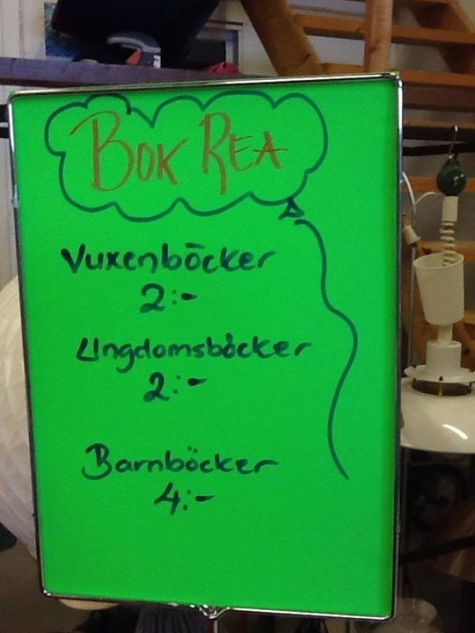 BOK REA
Vuxenböcker
2:-
Ungdomsböcker
2:-
Barnböcker
4:-